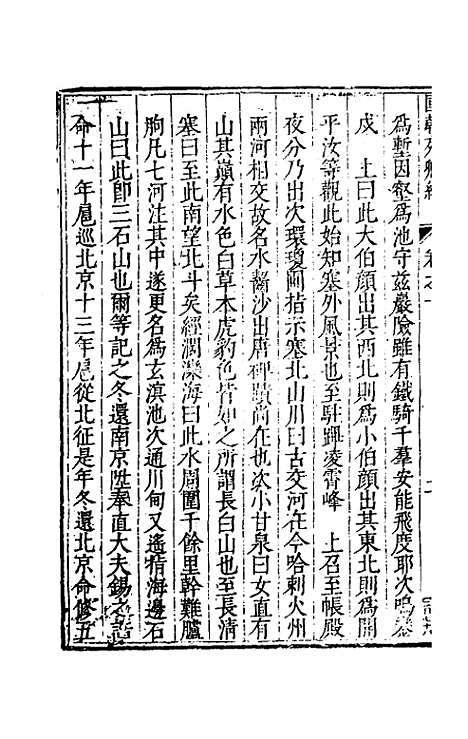 爲塹因壑爲池守玆嚴險雖有鐵騎千羣安能飛度耶次鳴鑾
戍　上曰此大伯顔出其西北則爲小伯顔出其東北則爲開
平汝等觀此始知塞外風景也至駐蹕凌霄峰　上召至帳殿
夜分乃出次環瓊阿指示塞北山川曰古交河在今哈剌火州
兩河相交故名水醫沙出唐碑蹟尚在也次小甘泉曰女直有
山其巔有水色白草木虎豹色皆如之所謂長白山也至長清
塞曰至此南望北斗矣經濶灤海曰此水周圍千餘里斡難臚
朐凡七河注其中遂更名爲玄滇池次通川甸又遙指海邊石
山曰此卽三石山也爾等記之冬還南京陞奉直大夫錫之誥
命十一年扈巡北京十三年扈從北征是年冬還北京命修五
國朝列卿紀
卷之十